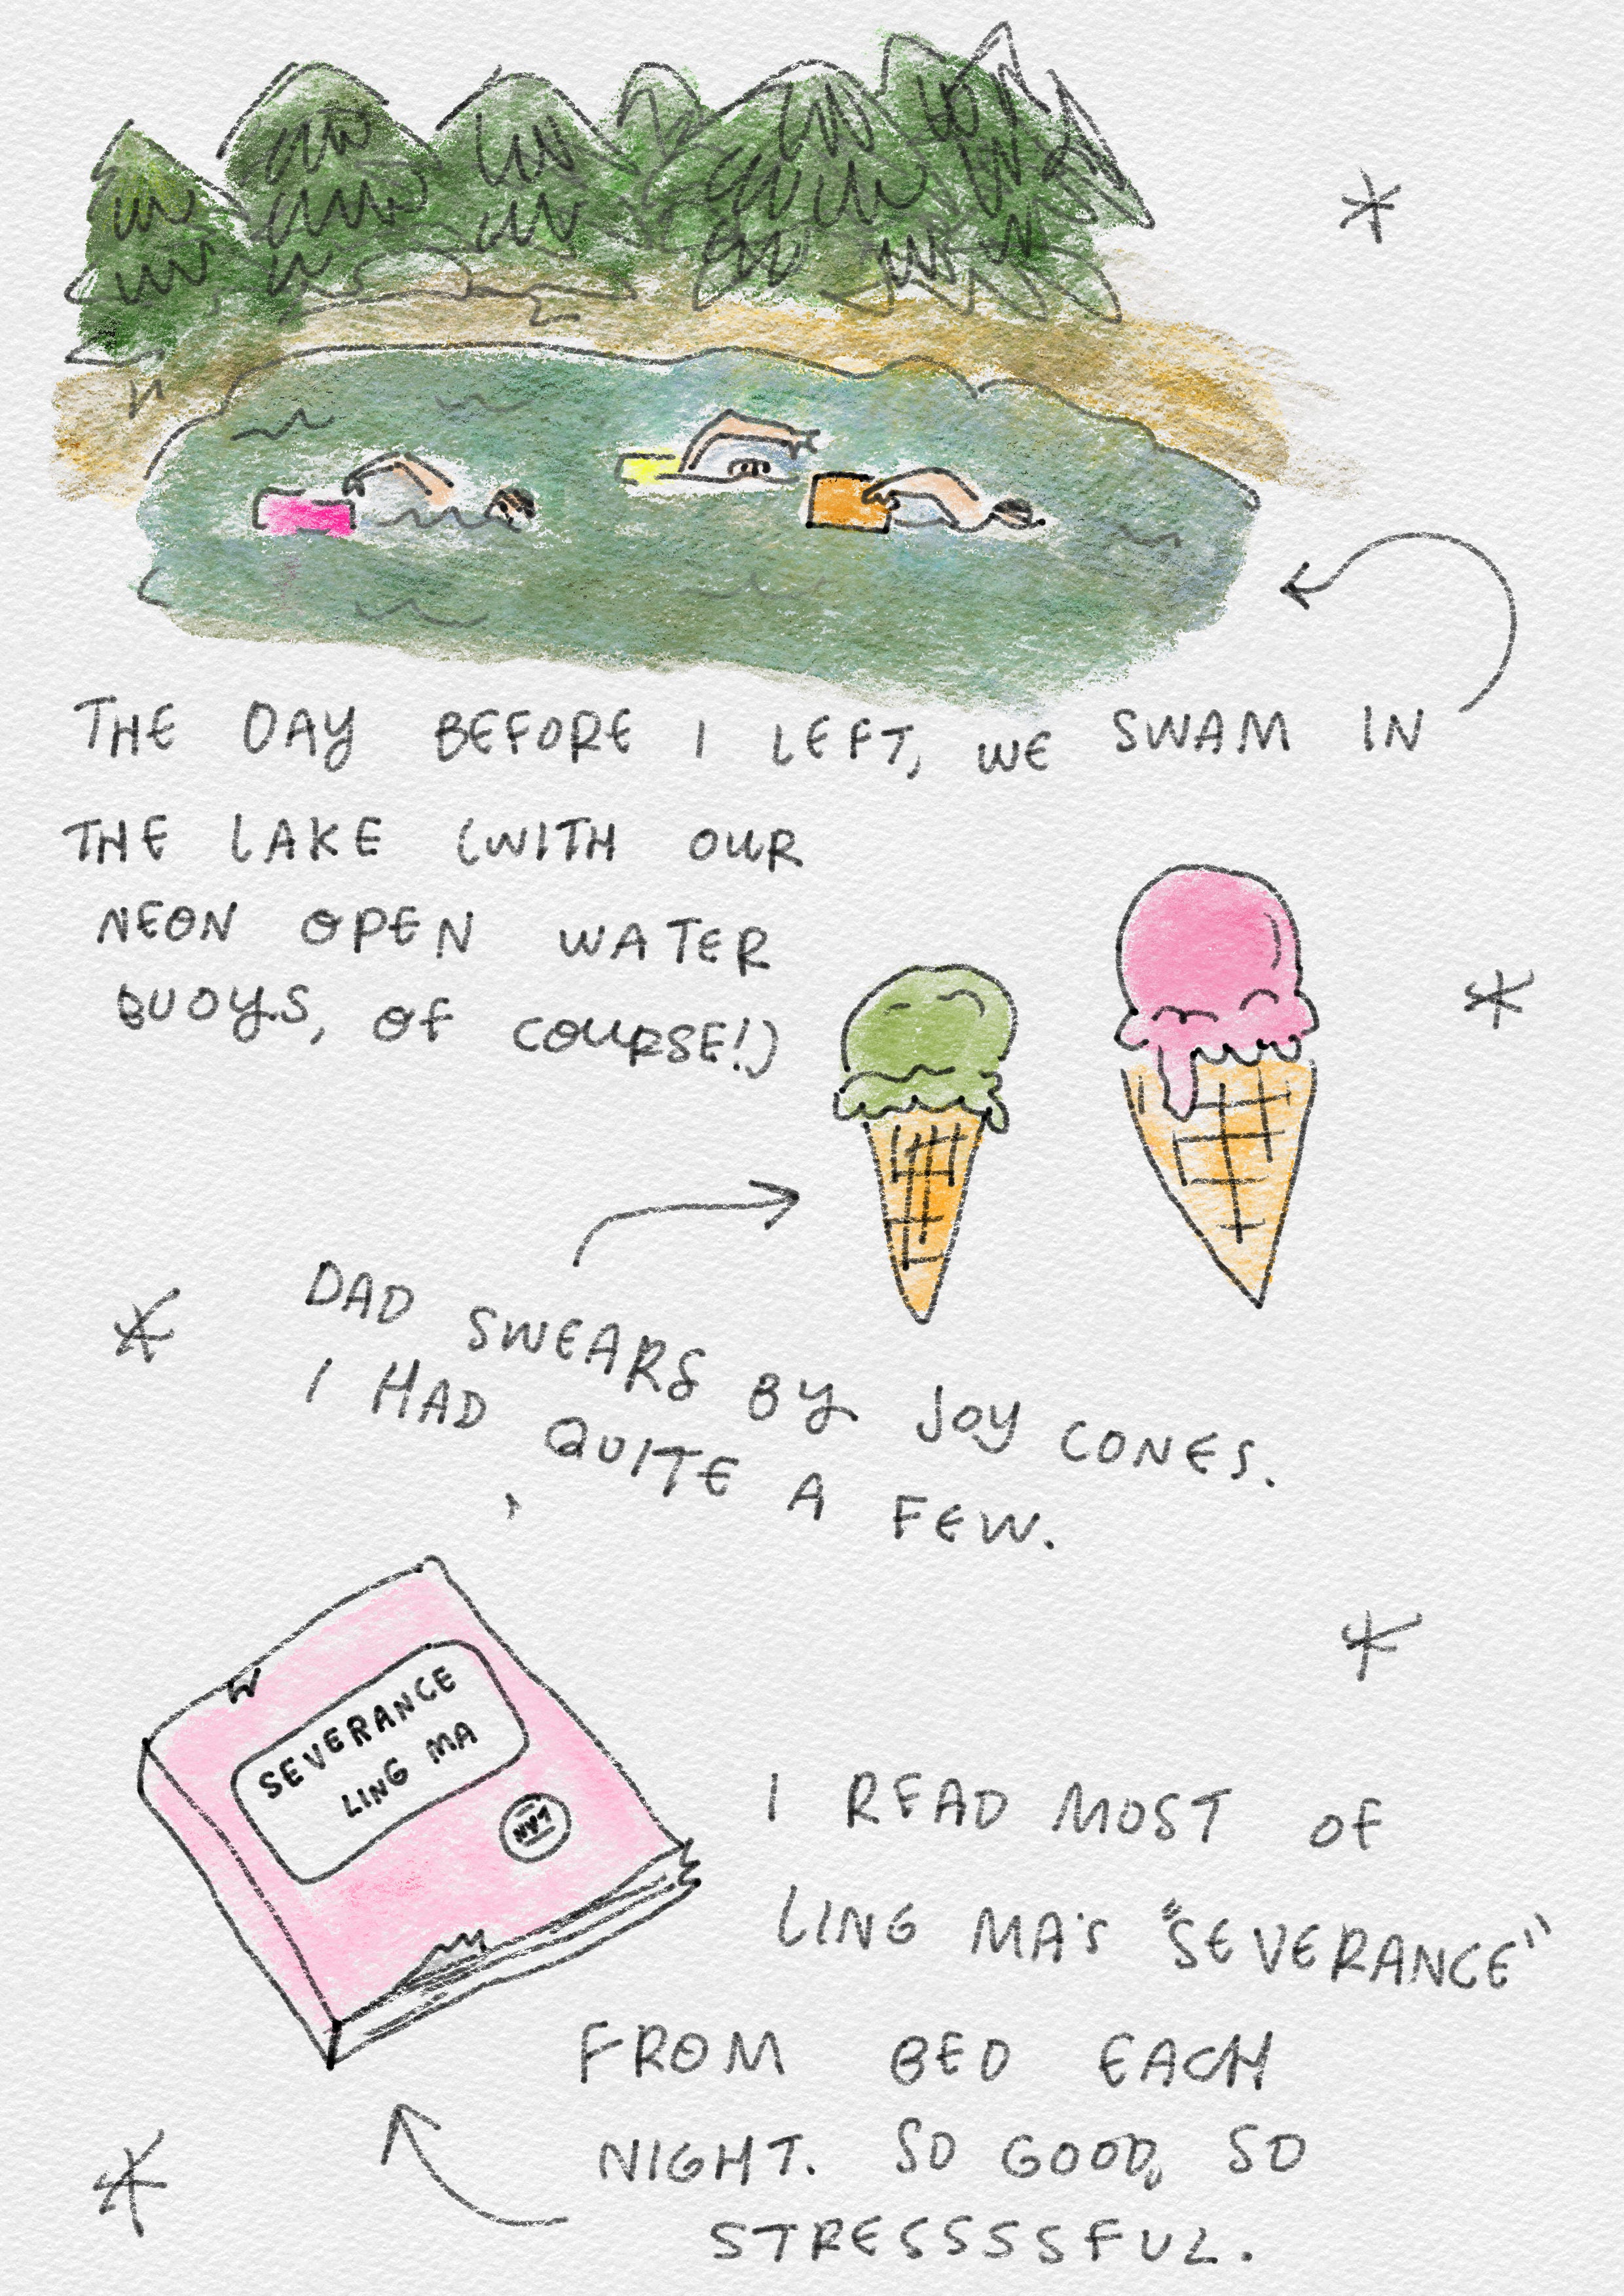 THE DAY BEFORE I LEFT, WE SWAM IN
THE LAKE (WITH OUR
NEON OPEN WATER
BUOYS, OF COURSE!)
DAD SWEARS BY JOY CONES.
I HAD QUITE A FEW.
SEVERANCE
LING MA
NYT
I READ MOST OF
LING MA'S "SEVERANCE"
FROM BED EACH
NIGHT. SO GOOD, SO
STRESSSSFUL.